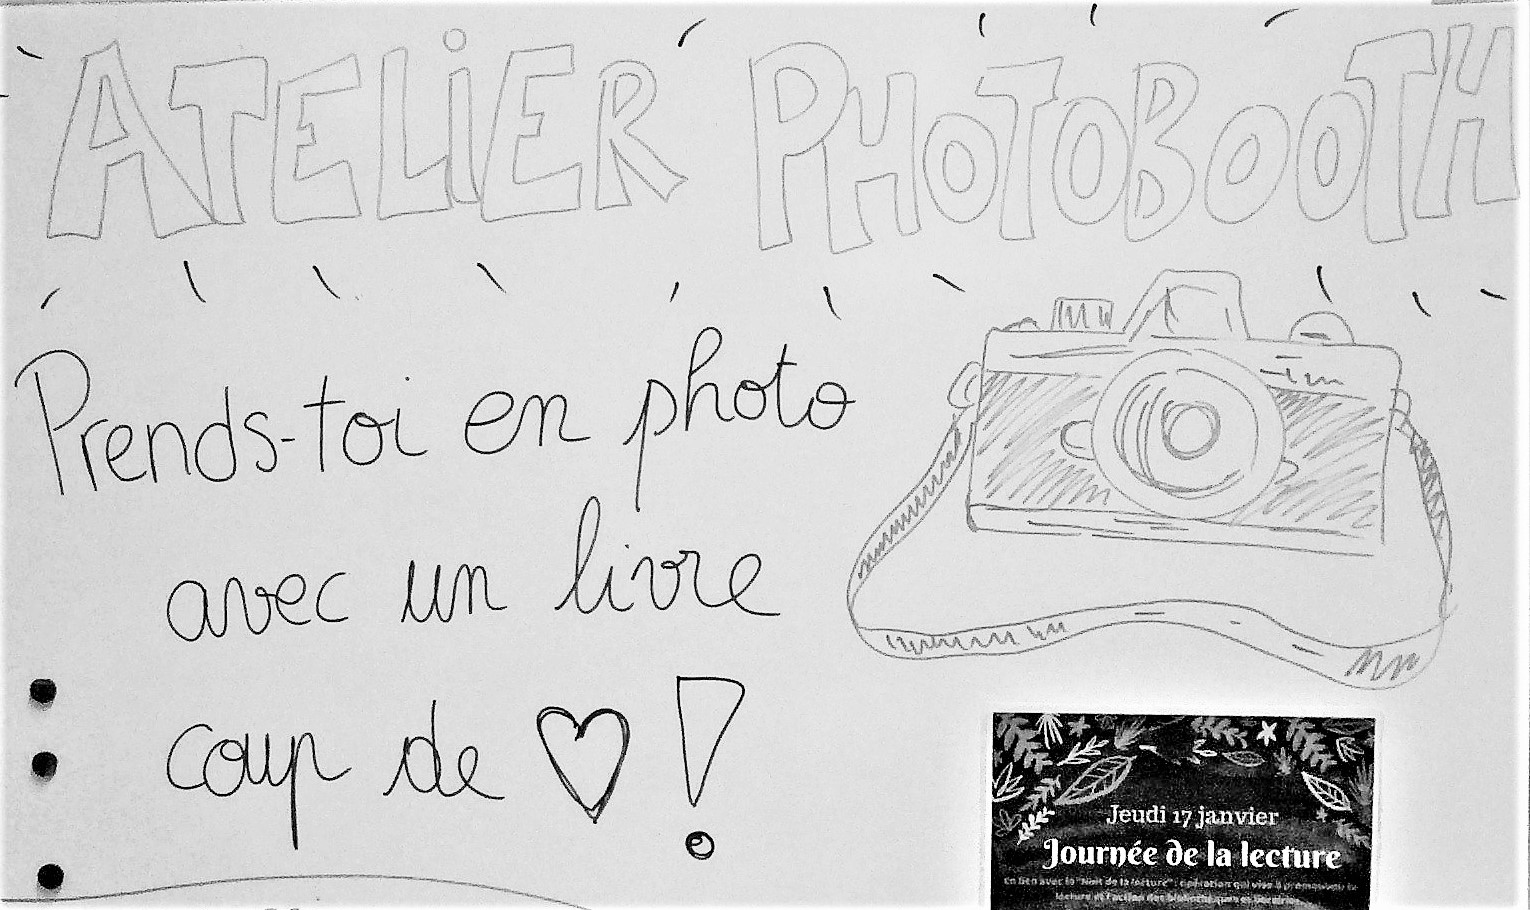 ATELiER PHOTOBOOTH
Prends-toi en photo
avec un livre
coup de ♡ !
Jeudi 17 janvier
Journée de la lecture
En lien avec la "Nuit de la lecture" : opération qui vise à promouvoir la
lecture et l'action des bibliothèques et librairies